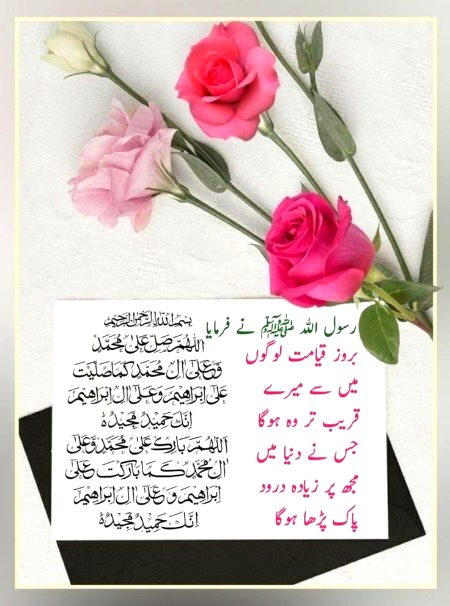 رسول اللہ ﷺ نے فرمایا
بروز قیامت لوگوں
میں سے میرے
قریب تر وہ ہوگا
جس نے دنیا میں
مجھ پر زیادہ درود
پاک پڑھا ہوگا
بسم اللہ الرحمن الرحیم
اللهم صل على محمد
وعلى ال محمد كما صليت
على ابراهيم وعلى ال ابراهيم
انك حميد مجيد
اللهم بارك على محمد وعلى
ال محمد كما باركت على
ابراهيم وعلى ال ابراهيم
انك حميد مجيد